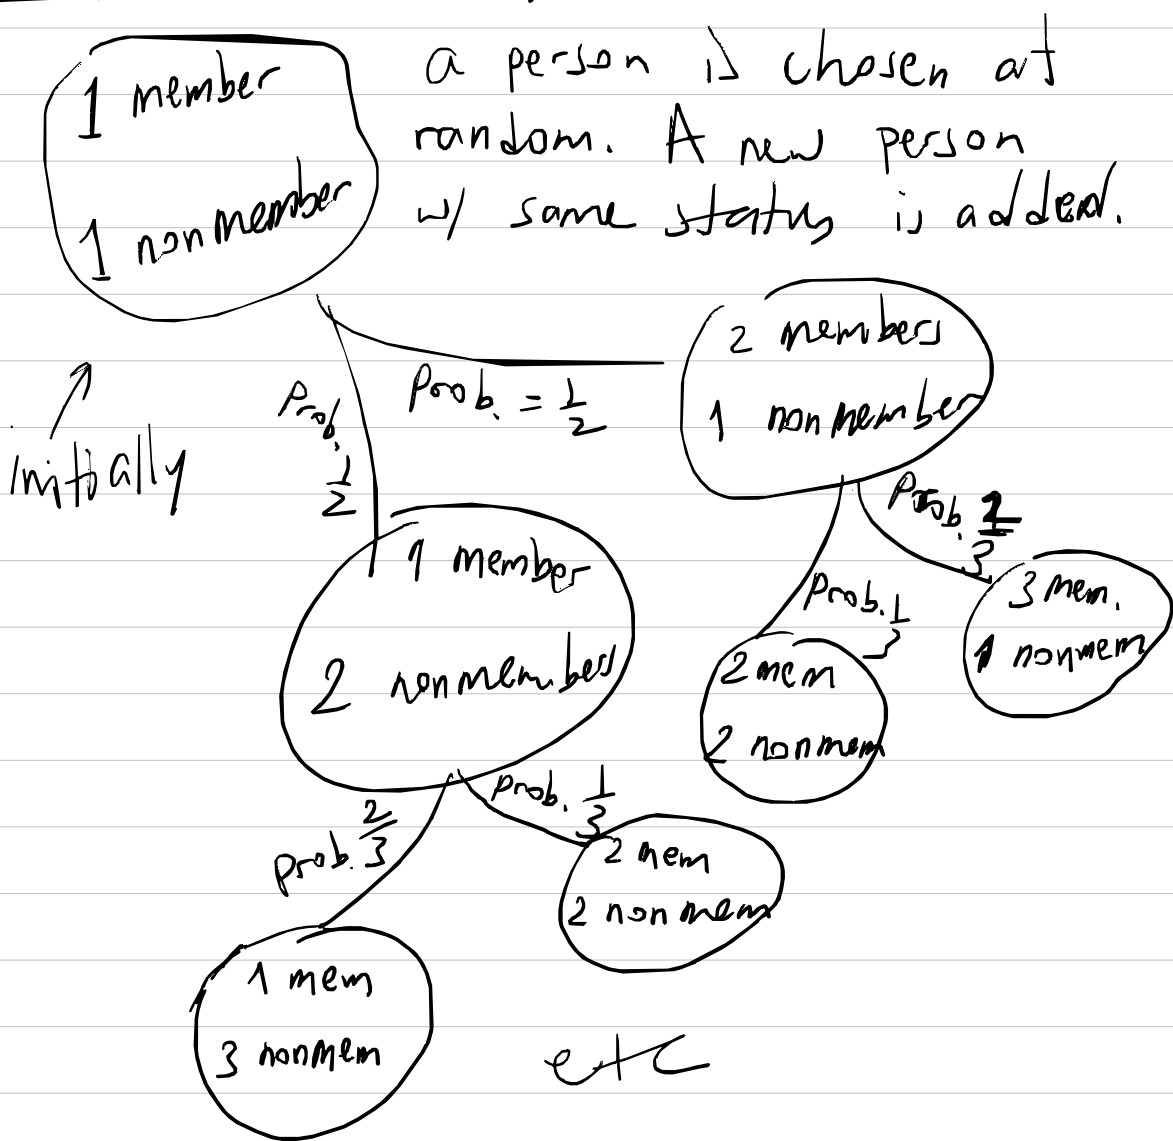 1 member
1 nonmember
a person is chosen at
random. A new person
w/ same status is added.
initially
Prob. 1/2
Prob. = 1/2
2 members
1 nonmember
1 member
2 nonmembers
Prob. 1/3
2 mem
2 nonmem
Prob. 2/3
3 mem.
1 nonmem
prob. 2/3
1 mem
3 nonmem
prob. 1/3
2 mem
2 nonmem
etc